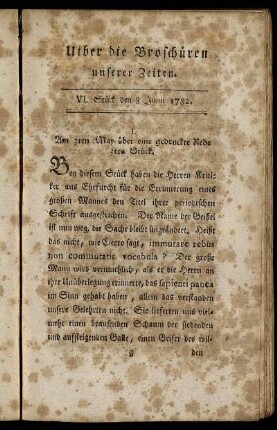 Ueber die Broschüren
unserer Zeiten.
VI. Stück den 8 Junii 1782.
1.
Am 3ten May über eine gedruckte Rede
2tes Stück.
Bey diesem Stück haben die Herren Kritiker
aus Ehrfurcht für die Erinnerung eines
großen Mannes den Titel ihrer periodischen
Schrift ausgestrichen. Der Name der Geisel
ist nun weg, die Sache bleibt ungeändert. Heißt
das nicht, wie Cicero sagt, immutare rebus
non commutatis vocabula? Der große
Mann wird vermuthlich, als er die Herrn an
ihre Unüberlegung erinnerte, das sapienti pauca
im Sinn gehabt haben, allein das verstanden
unsere Gelehrten nicht. Sie lieferten uns vielmehr
einen brausenden Schaum der siedenden
und aufsteigenden Galle, einen Geifer des
g den